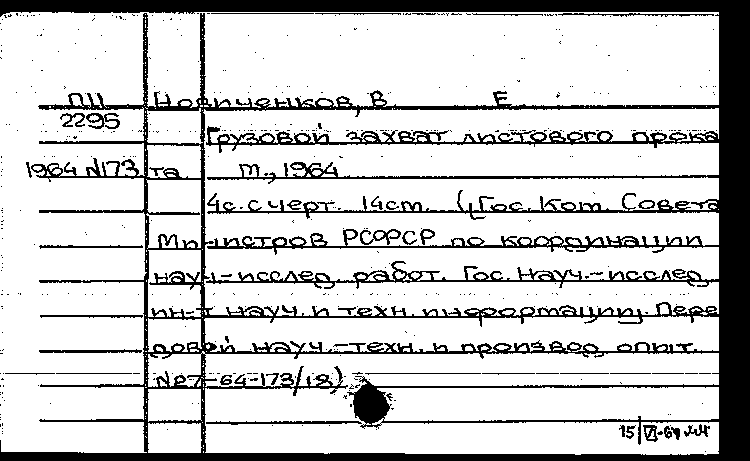 ПП Новиченков, В Е
2295
Грузовой захват листового прока
1964 №173 та М., 1964
4с. с черт. 14см. (Гос. Ком. Совета
Министров РСФСР по координации
науч-исслед. работ. Гос. Науч.-исслед
ин-т науч. и техн. информации. Пере
довой науч.-техн. и производ опыт.
№27-64-173/18)
15/VI-64